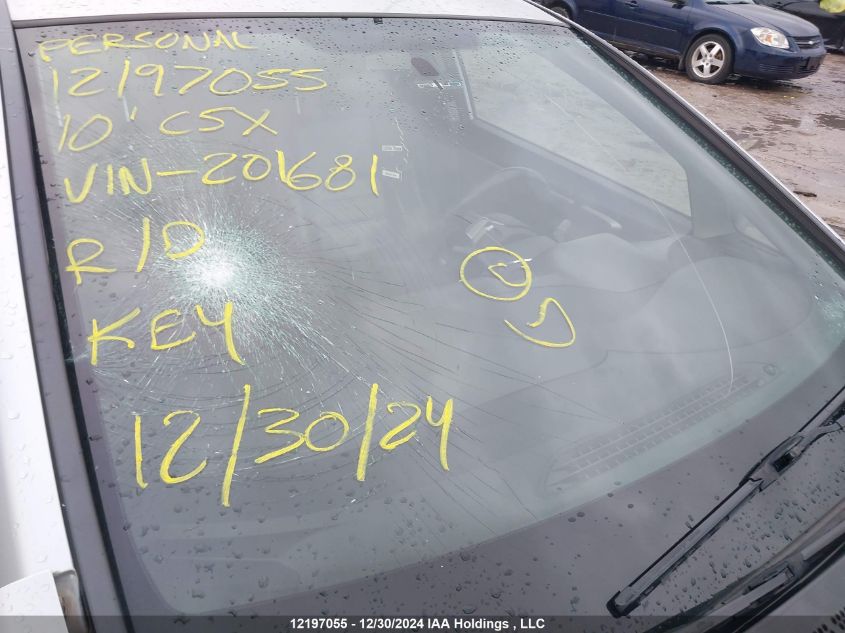 PERSONAL
12197055
10' CSX
VIN-201681
R/D
KEY
12/30/24
D
12197055 - 12/30/2024 IAA Holdings , , CTNO